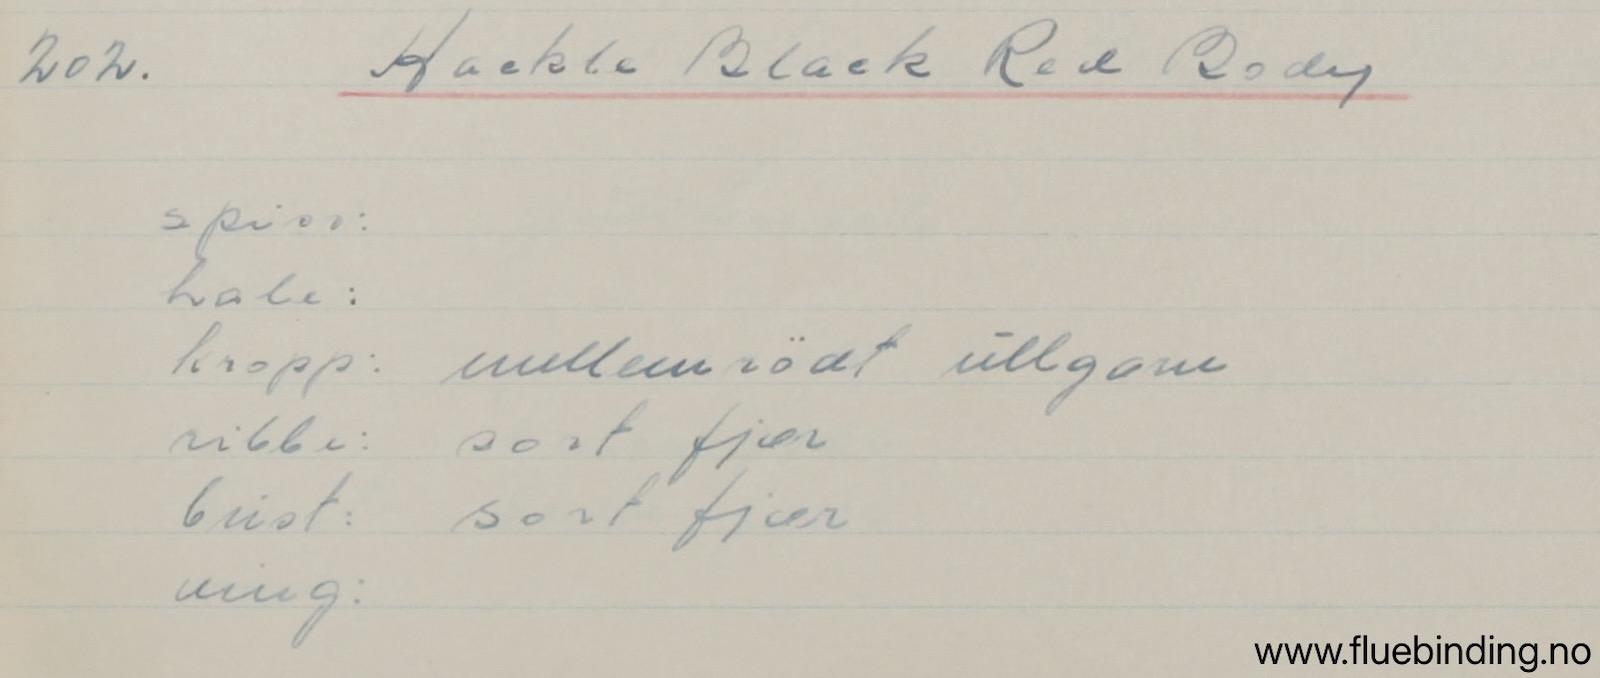 202. Hackle Black Red Body
spiss:
hale:
kropp: mellemrödt ullgarn
ribbe: sort fjær
brist: sort fjær
ving:
www.fluebinding.no